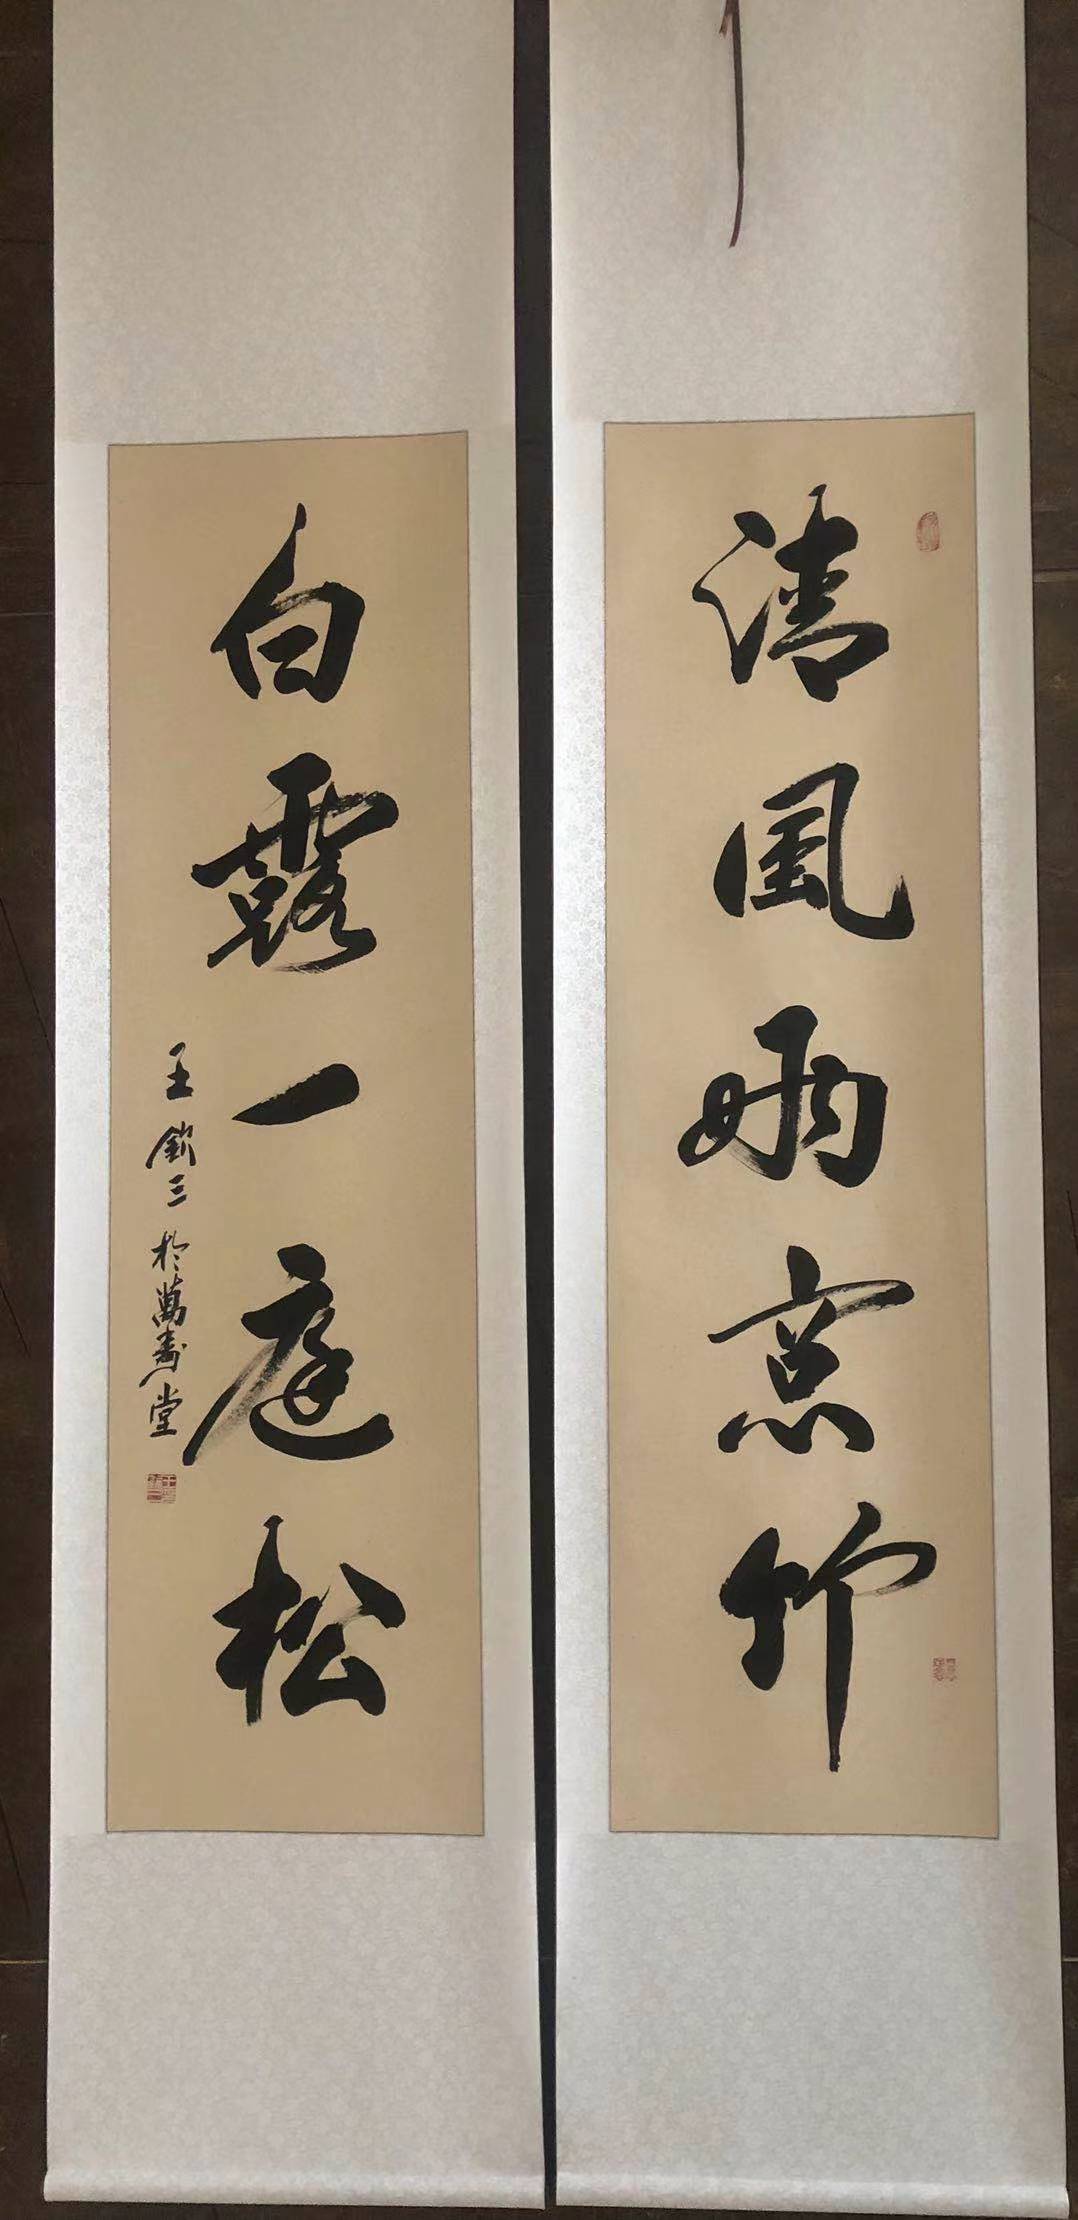 清風兩窓竹
白露一庭松
王欽三於萬壽堂